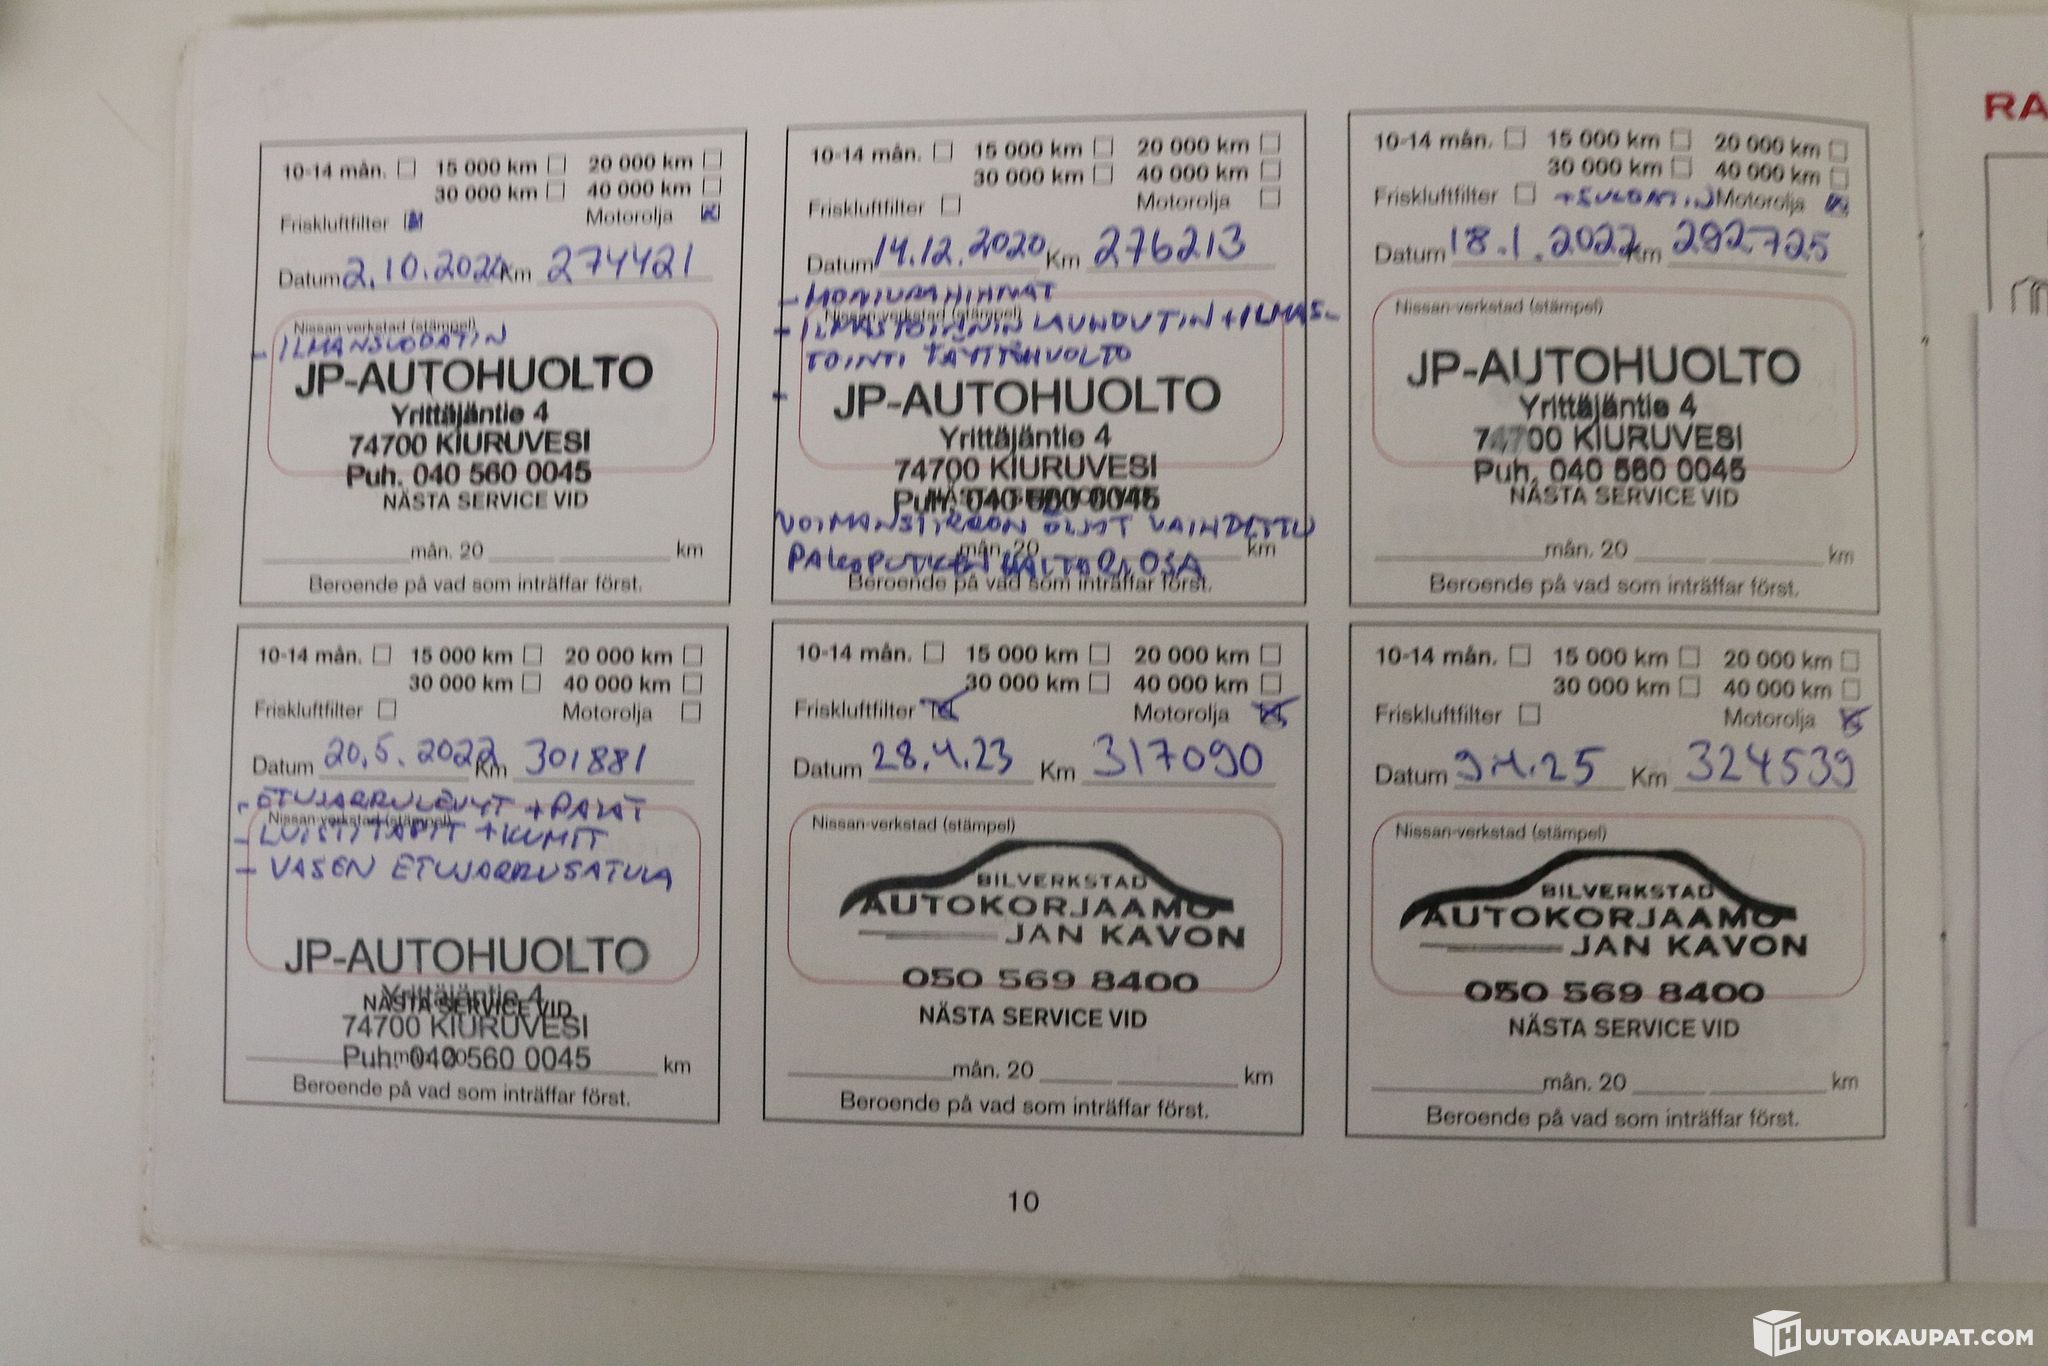 10-14 mån. 15 000 km 20 000 km
30 000 km 40 000 km
Friskluftfilter Motorolja
Datum 2.10.2020 Km 274421
Nissan-verkstad (stämpel)
- ILMANSUODATIN
JP-AUTOHUOLTO
Yrittäjäntie 4
74700 KIURUVESI
Puh. 040 560 0045
NÄSTA SERVICE VID
mån. 20 km
Beroende på vad som inträffar först.
10-14 mån. 15 000 km 20 000 km
30 000 km 40 000 km
Friskluftfilter Motorolja
Datum 14.12.2020 Km 276213
- MONIURAHIHNAT
Nissan-verkstad (stämpel)
- ILMASTOINNIN LAUHDUTIN + ILMAS-
TOINTI TÄYTTÖHUOLTO
-
JP-AUTOHUOLTO
Yrittäjäntie 4
74700 KIURUVESI
Puh. 040 560 0045
NÄSTA SERVICE VID
VOIMANSIIRRON ÖLJYT VAIHDETTU
mån. 20 km
PAKOPUTKEN
Beroende på vad som inträffar först.
10-14 mån. 15 000 km 20 000 km
30 000 km 40 000 km
Friskluftfilter + SUODATIN Motorolja
Datum 18.1.2022 Km 292725
Nissan-verkstad (stämpel)
JP-AUTOHUOLTO
Yrittäjäntie 4
74700 KIURUVESI
Puh. 040 560 0045
NÄSTA SERVICE VID
mån. 20 km
Beroende på vad som inträffar först.
10-14 mån. 15 000 km 20 000 km
30 000 km 40 000 km
Friskluftfilter Motorolja
Datum 20.5.2022 Km 301881
- ETUJARRULEVYT + PALAT
Nissan-verkstad (stämpel)
- LUISTITAPIT + KUMIT
- VASEN ETUJARRUSATULA
JP-AUTOHUOLTO
Yrittäjäntie 4
NÄSTA SERVICE VID
74700 KIURUVESI
Puh. 040 560 0045
mån. 20 km
Beroende på vad som inträffar först.
10-14 mån. 15 000 km 20 000 km
30 000 km 40 000 km
Friskluftfilter Motorolja
Datum 28.4.23 Km 317090
Nissan-verkstad (stämpel)
BILVERKSTAD
AUTOKORJAAMO
JAN KAVON
050 569 8400
NÄSTA SERVICE VID
mån. 20 km
Beroende på vad som inträffar först.
10-14 mån. 15 000 km 20 000 km
30 000 km 40 000 km
Friskluftfilter Motorolja
Datum 9.4.25 Km 324539
Nissan-verkstad (stämpel)
BILVERKSTAD
AUTOKORJAAMO
JAN KAVON
050 569 8400
NÄSTA SERVICE VID
mån. 20 km
Beroende på vad som inträffar först.
10
RA
HUUTOKAUPAT.COM